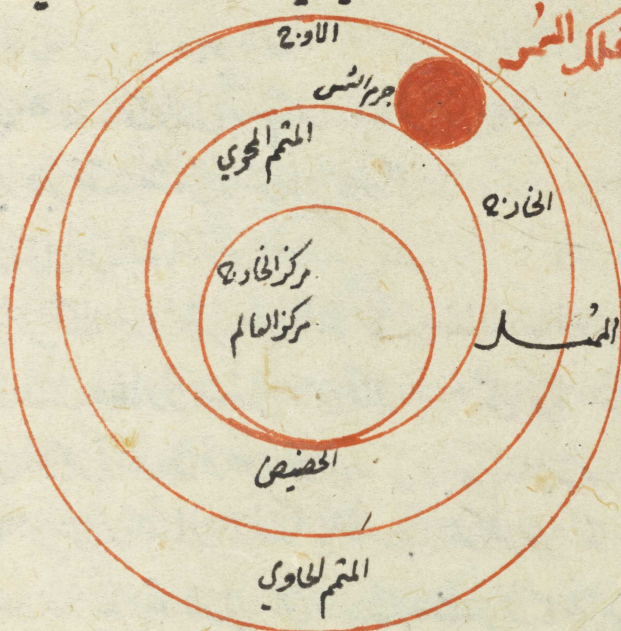 فلك الشمس
الاوج
جرم الشمس
المتمم المحوي
الخارج
مركز الخارج
مركز العالم
الممثل
الحضيض
المتمم الحاوي